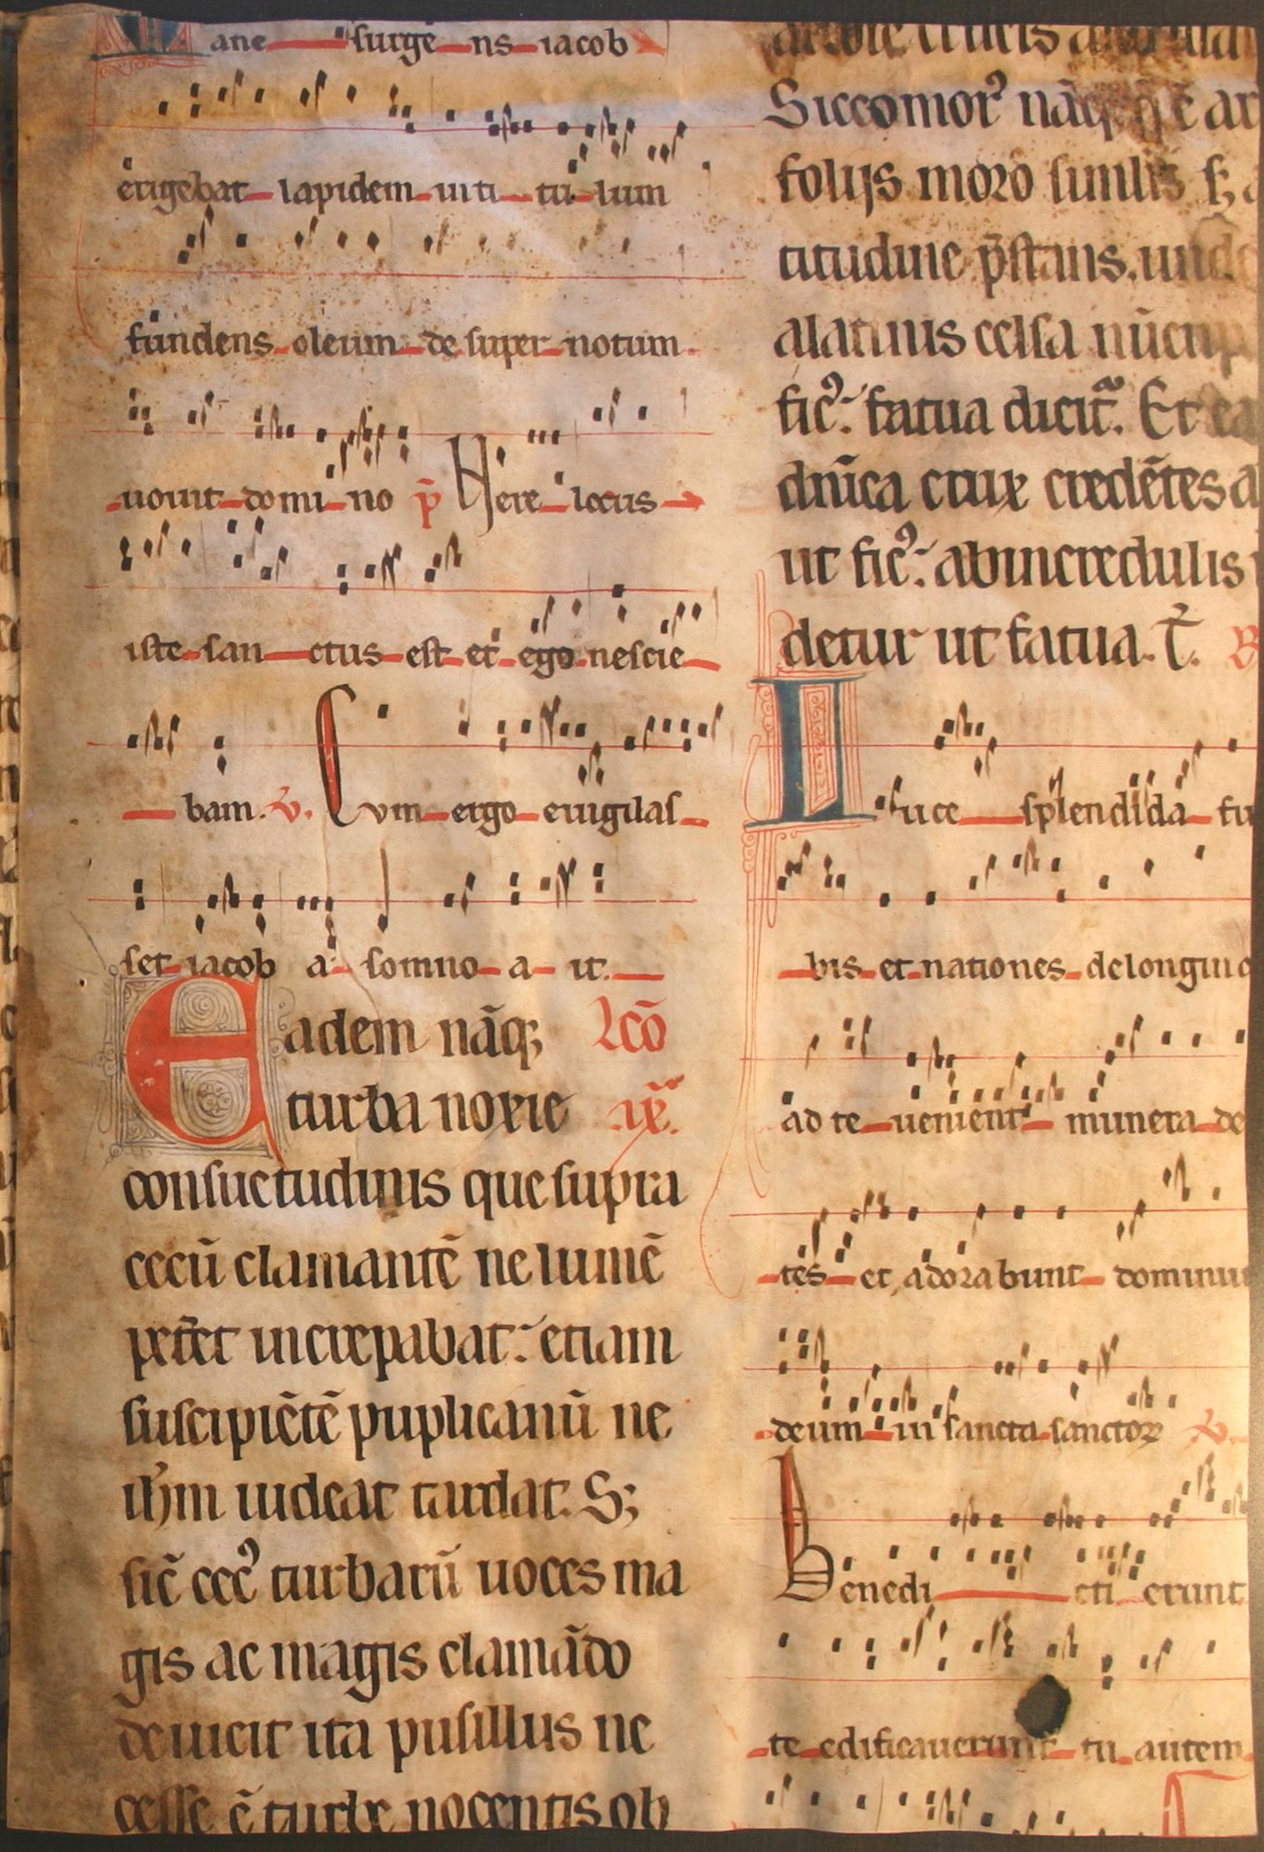 Mane surgē ns iacob
erigebat lapidem in ti tu lum
fundens oleum de super uotum
uouit domi no p̄ Uere locus
iste san ctus est et ego nescie
bam. V. Cum ergo euigilas
set iacob a somno a it.
Eadem nāq; lcō
turba noxie ix.
consuetudinis que supra
cecū clamantē ne lumē
peteret increpabat: etiam
suscipiētē puplicanū ne
ihm uideat tardat. S;
sic̄ cec⁹ turbarū uoces ma
gis ac magis clamādo
deuicit ita pusillus ne
cesse ē turbe nocentis ob
arbore crucis
Siccomor⁹ nāq;
folijs moro similis s;
titudine p̄stans. und
alatinis celsa nūcup
fic⁹: fatua dicit̃. Et ea
dn̄ica crux credētes a
ut fic⁹: ab incredulis
detur ut fatua. T̃. R
Luce splendida fu
bis et nationes de longinq
ad te uenient munera de
tes et adorabunt dominum
deum in sancta sanctoꝝ V.
Benedi cti erunt
te edificauerunt tu autem